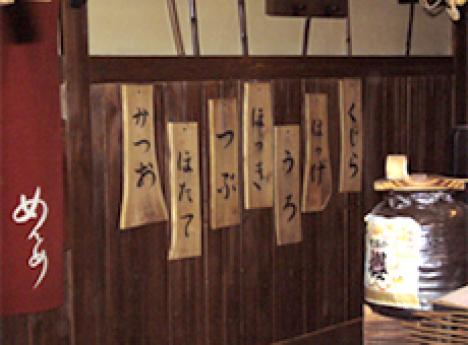 くじら
ほっけ
うろ
ほっき
つぶ
ほたて
かつお